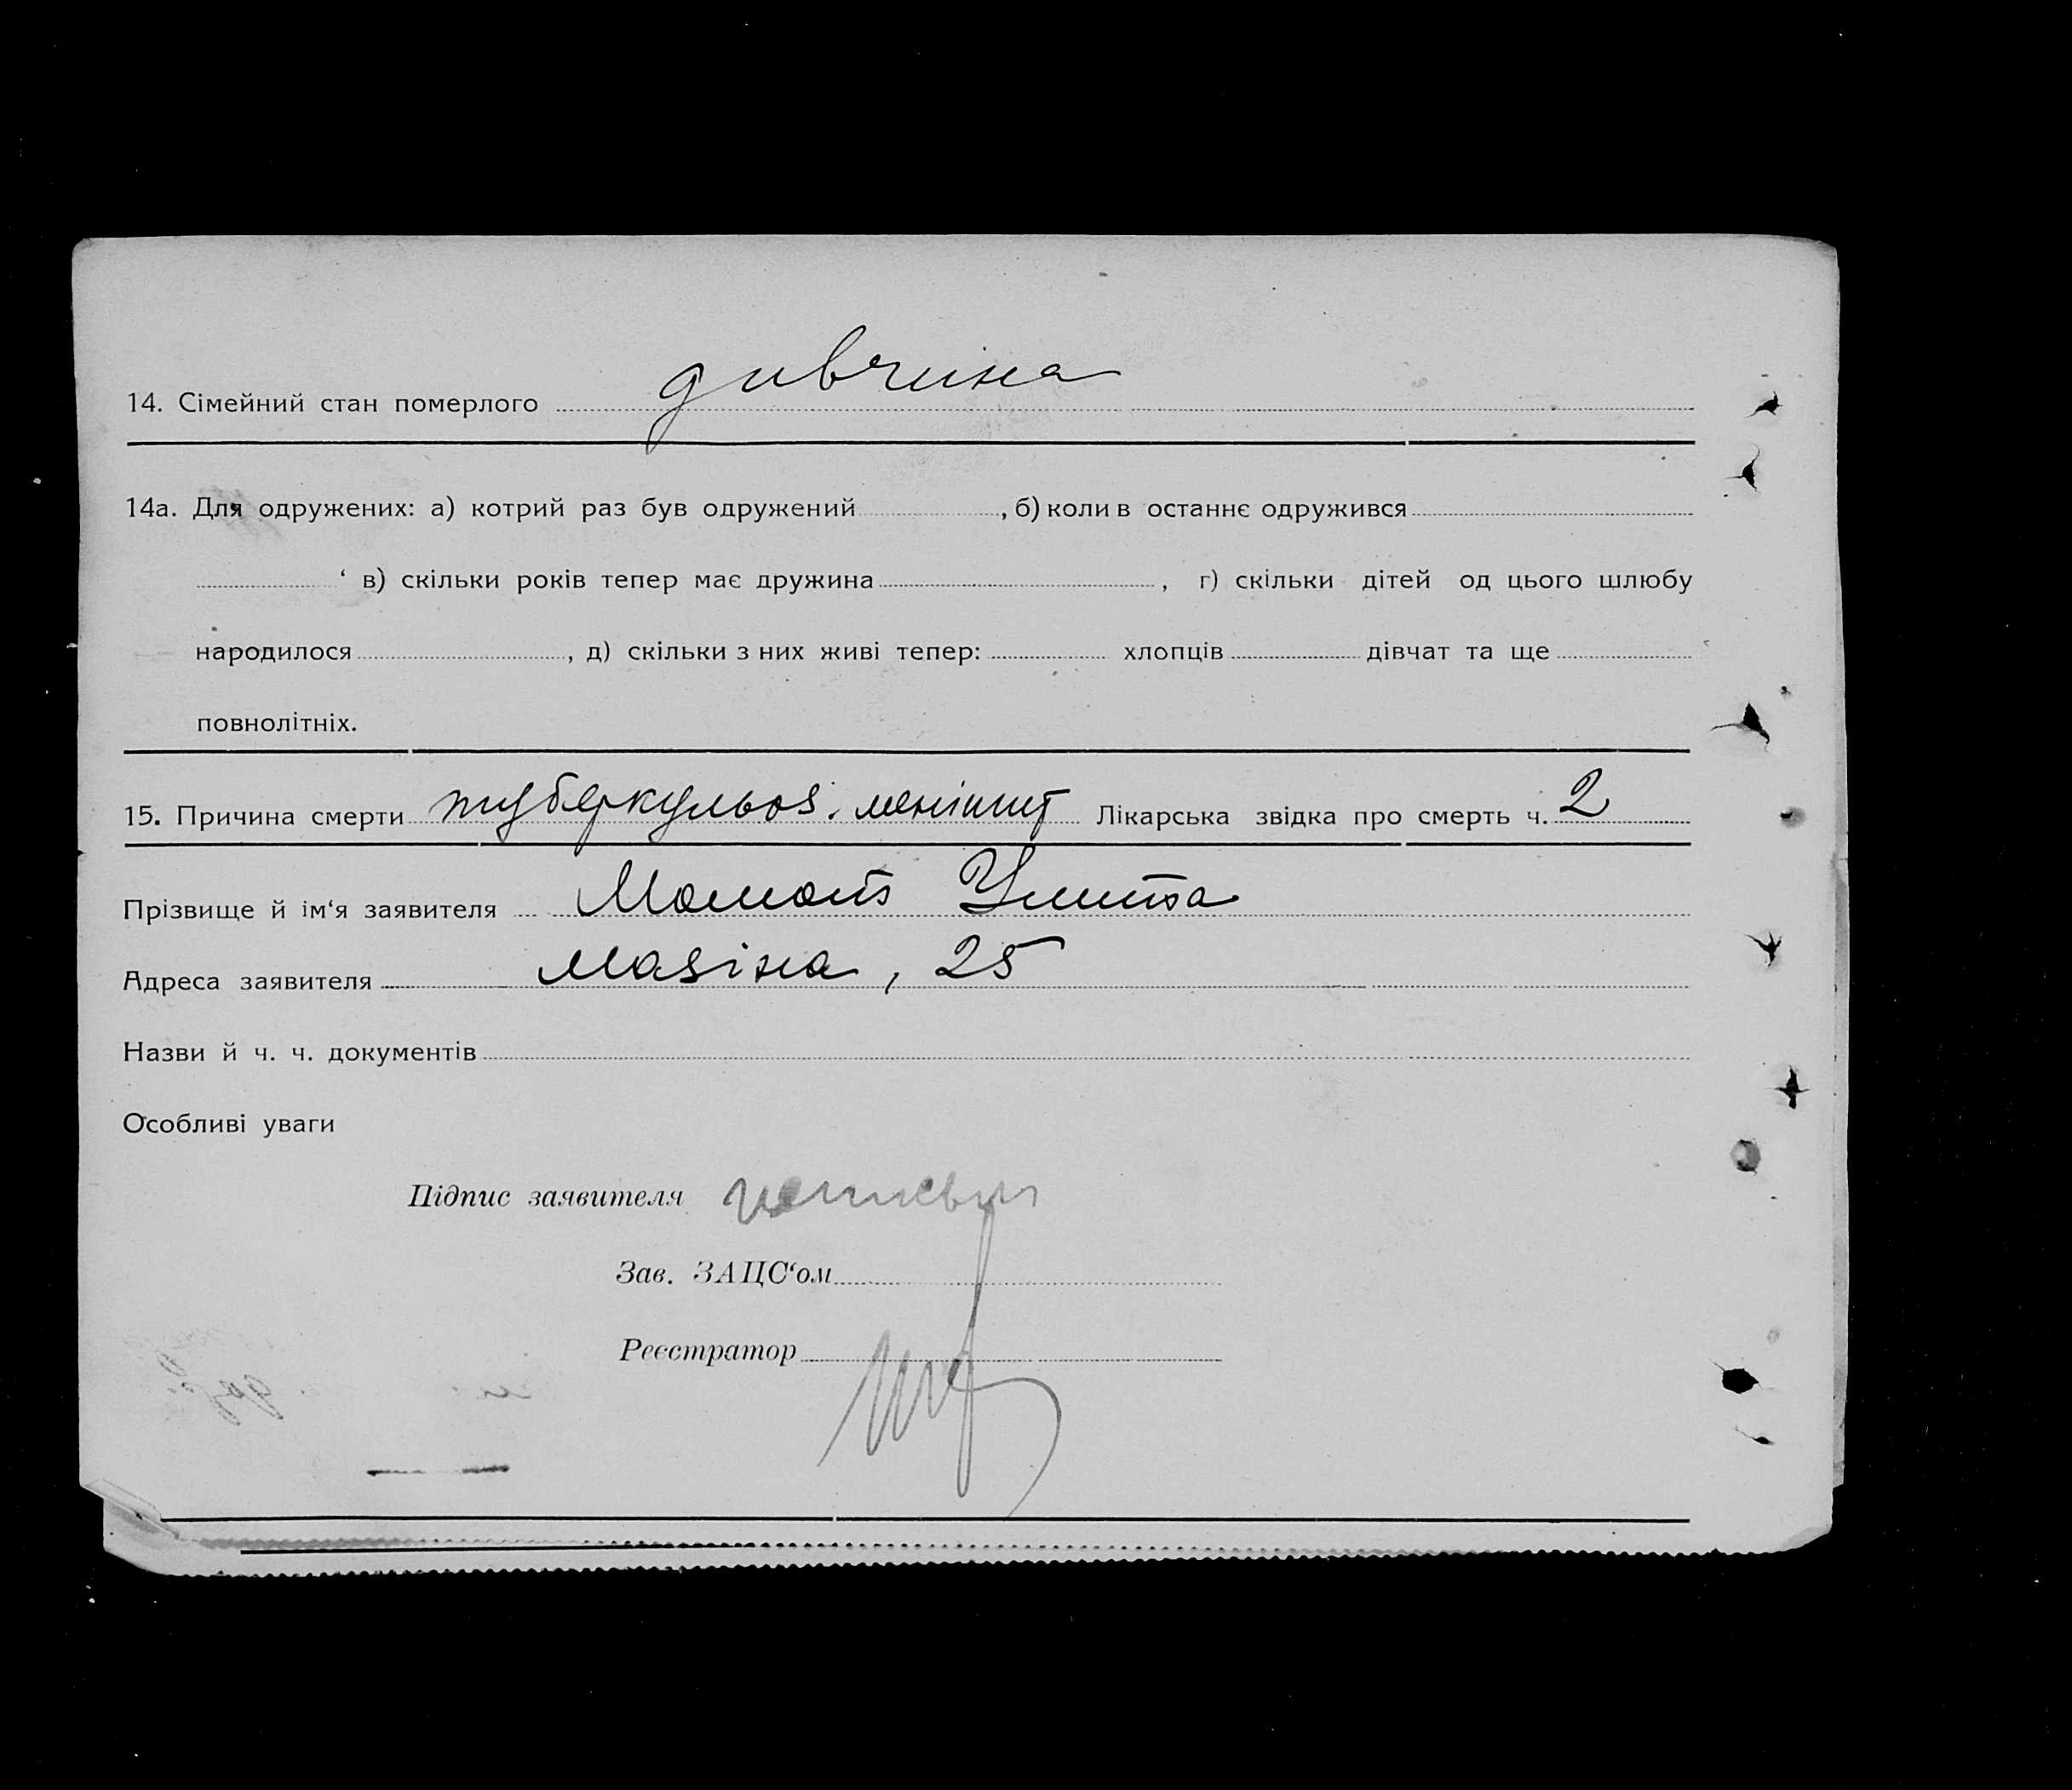 14. Сімейний стан померлого дивчина
14а. Для одружених: а) котрий раз був одружений , б) коли в останнє одружився
‘ в) скільки років тепер має дружина , г) скільки дітей од цього шлюбу
народилося , д) скільки з них живі тепер: хлопців дівчат та ще
повнолітніх.
15. Причина смерти туберкульоз. менінгит Лікарська звідка про смерть ч. 2
Прізвище й ім‘я заявителя Мамот Улита
Адреса заявителя Мазіна, 25
Назви й ч. ч. документів
Особливі уваги
Підпис заявителя
Зав. ЗАЦС‘ом
Реєстратор